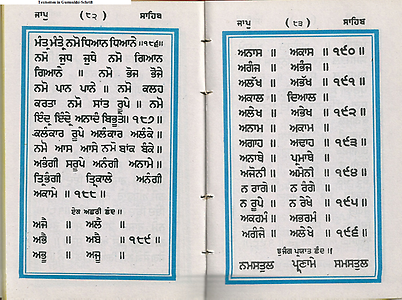 Textseiten in Gurmukhi-Schrift
ਜਾਪੁ ( ੮੨ ) ਸਾਹਿਬ
ਮੰਤ੍ਰ ਮੰਤ੍ਰੇ ਨਮੋ ਧਿਆਨ ਧਿਆਨੇ ॥੧੮੬॥
ਨਮੋ ਜੁਧ ਜੁਧੇ ਨਮੋ ਗਿਆਨ
ਗਿਆਨੇ ॥ ਨਮੋ ਭੋਜ ਭੋਜੇ
ਨਮੋ ਪਾਨ ਪਾਨੇ ॥ ਨਮੋ ਕਲਹ
ਕਰਤਾ ਨਮੋ ਸਾਂਤ ਰੂਪੇ ॥ ਨਮੋ
ਇੰਦ੍ਰ ਇੰਦ੍ਰੇ ਅਨਾਦੰ ਬਿਭੂਤੇ ॥ ੧੮੭ ॥
ਕਲੰਕਾਰ ਰੂਪੇ ਅਲੰਕਾਰ ਅਲੰਕੇ ॥
ਨਮੋ ਆਸ ਆਸੇ ਨਮੋ ਬਾਂਕ ਬੰਕੇ ॥
ਅਭੰਗੀ ਸਰੂਪੇ ਅਨੰਗੀ ਅਨਾਮੇ ॥
ਤ੍ਰਿਭੰਗੀ ਤ੍ਰਿਕਾਲੇ ਅਨੰਗੀ
ਅਕਾਮੇ ॥ ੧੮੮ ॥
ਏਕ ਅਛਰੀ ਛੰਦ ॥
ਅਜੈ ॥ ਅਲੈ ॥
ਅਭੈ ॥ ਅਬੈ ॥ ੧੮੯ ॥
ਅਭੂ ॥ ਅਜੂ ॥
ਜਾਪੁ ( ੮੩ ) ਸਾਹਿਬ
ਅਨਾਸ ॥ ਅਕਾਸ ॥ ੧੯੦ ॥
ਅਗੰਜ ॥ ਅਭੰਜ ॥
ਅਲੱਖ ॥ ਅਭੱਖ ॥ ੧੯੧ ॥
ਅਕਾਲ ॥ ਦਿਆਲ ॥
ਅਲੇਖ ॥ ਅਭੇਖ ॥ ੧੯੨ ॥
ਅਨਾਮ ॥ ਅਕਾਮ ॥
ਅਗਾਹ ॥ ਅਢਾਹ ॥ ੧੯੩ ॥
ਅਨਾਥੇ ॥ ਪ੍ਰਮਾਥੇ ॥
ਅਜੋਨੀ ॥ ਅਮੋਨੀ ॥ ੧੯੪ ॥
ਨ ਰਾਗੇ ॥ ਨ ਰੰਗੇ ॥
ਨ ਰੂਪੇ ॥ ਨ ਰੇਖੇ ॥ ੧੯੫ ॥
ਅਕਰਮੰ ॥ ਅਭਰਮੰ ॥
ਅਗੰਜੇ ॥ ਅਲੇਖੇ ॥ ੧੯੬ ॥
ਭੁਜੰਗ ਪ੍ਰਯਾਤ ਛੰਦ ॥
ਨਮਸਤੁਲ ਪ੍ਰਣਾਮੇ ਸਮਸਤੁਲ